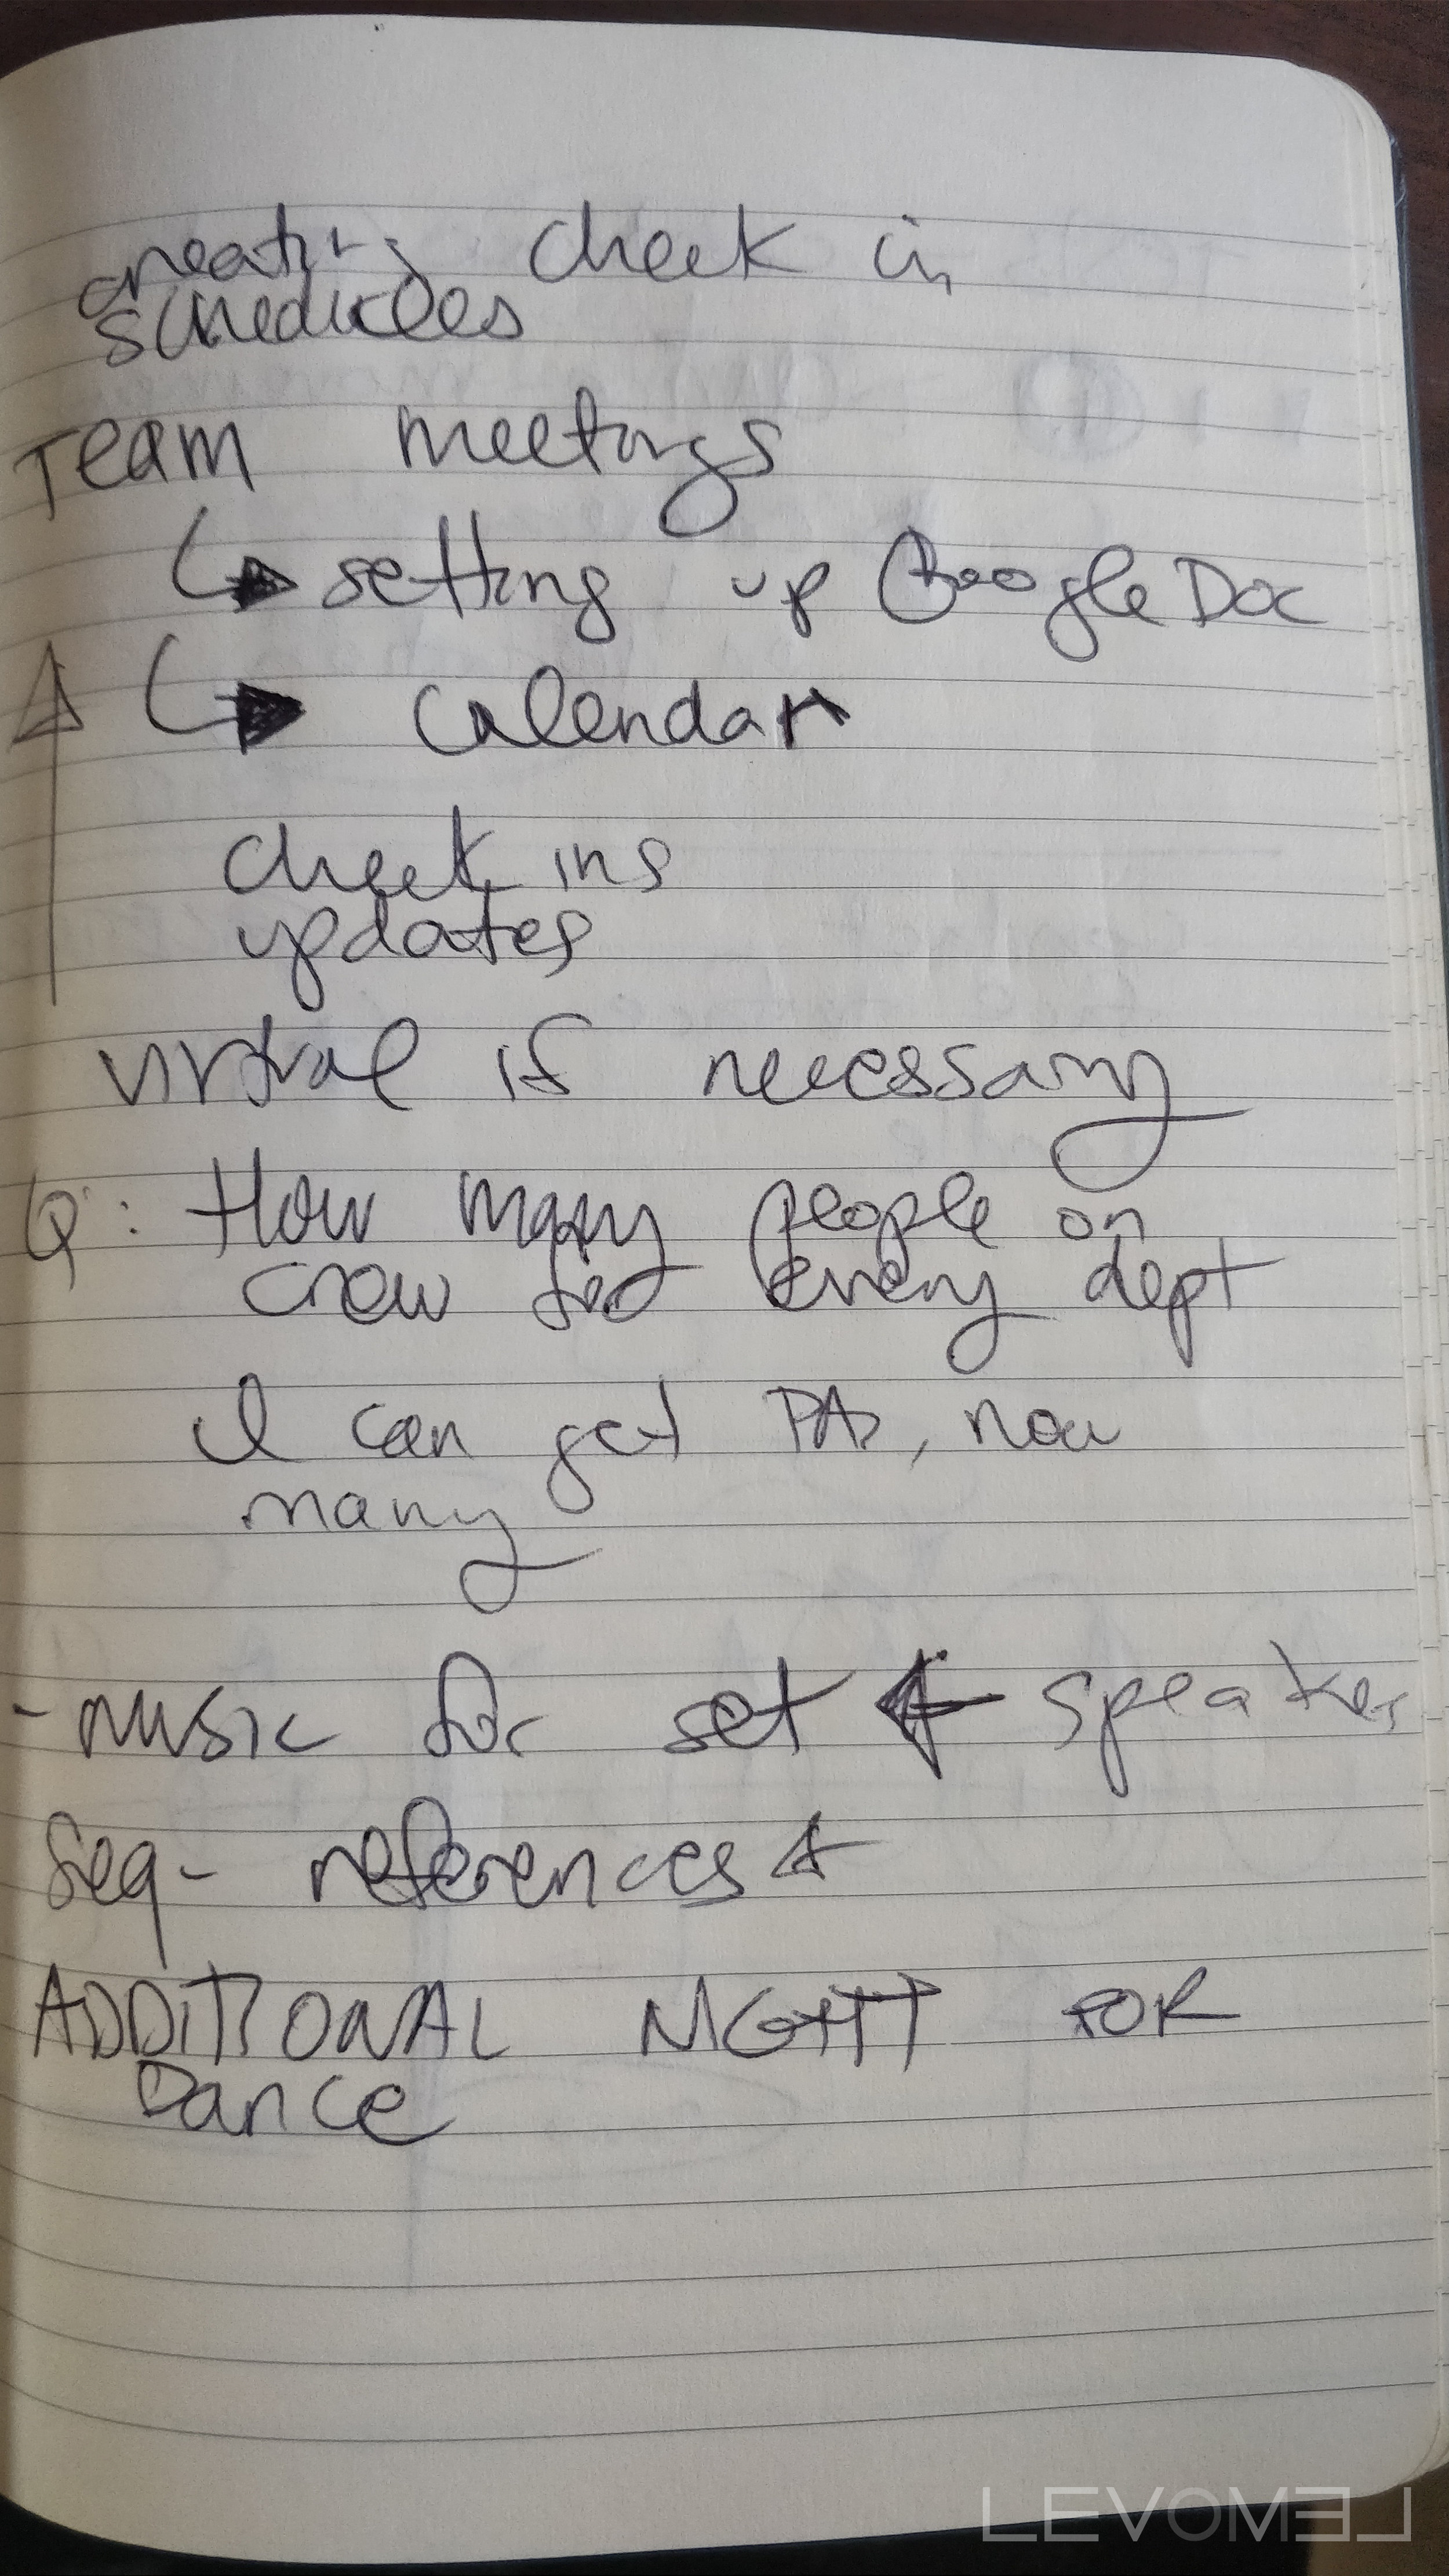 creating check in
schedules
Team meetings
setting up Google Doc
calendar
check ins
updates
virtual if necessary
Q: How many people on
crew for every dept
I can get PAs, how
many
- music for set ← speaker
Seq- references ←
ADDITIONAL NIGHT FOR
Dance
LEVOMEL